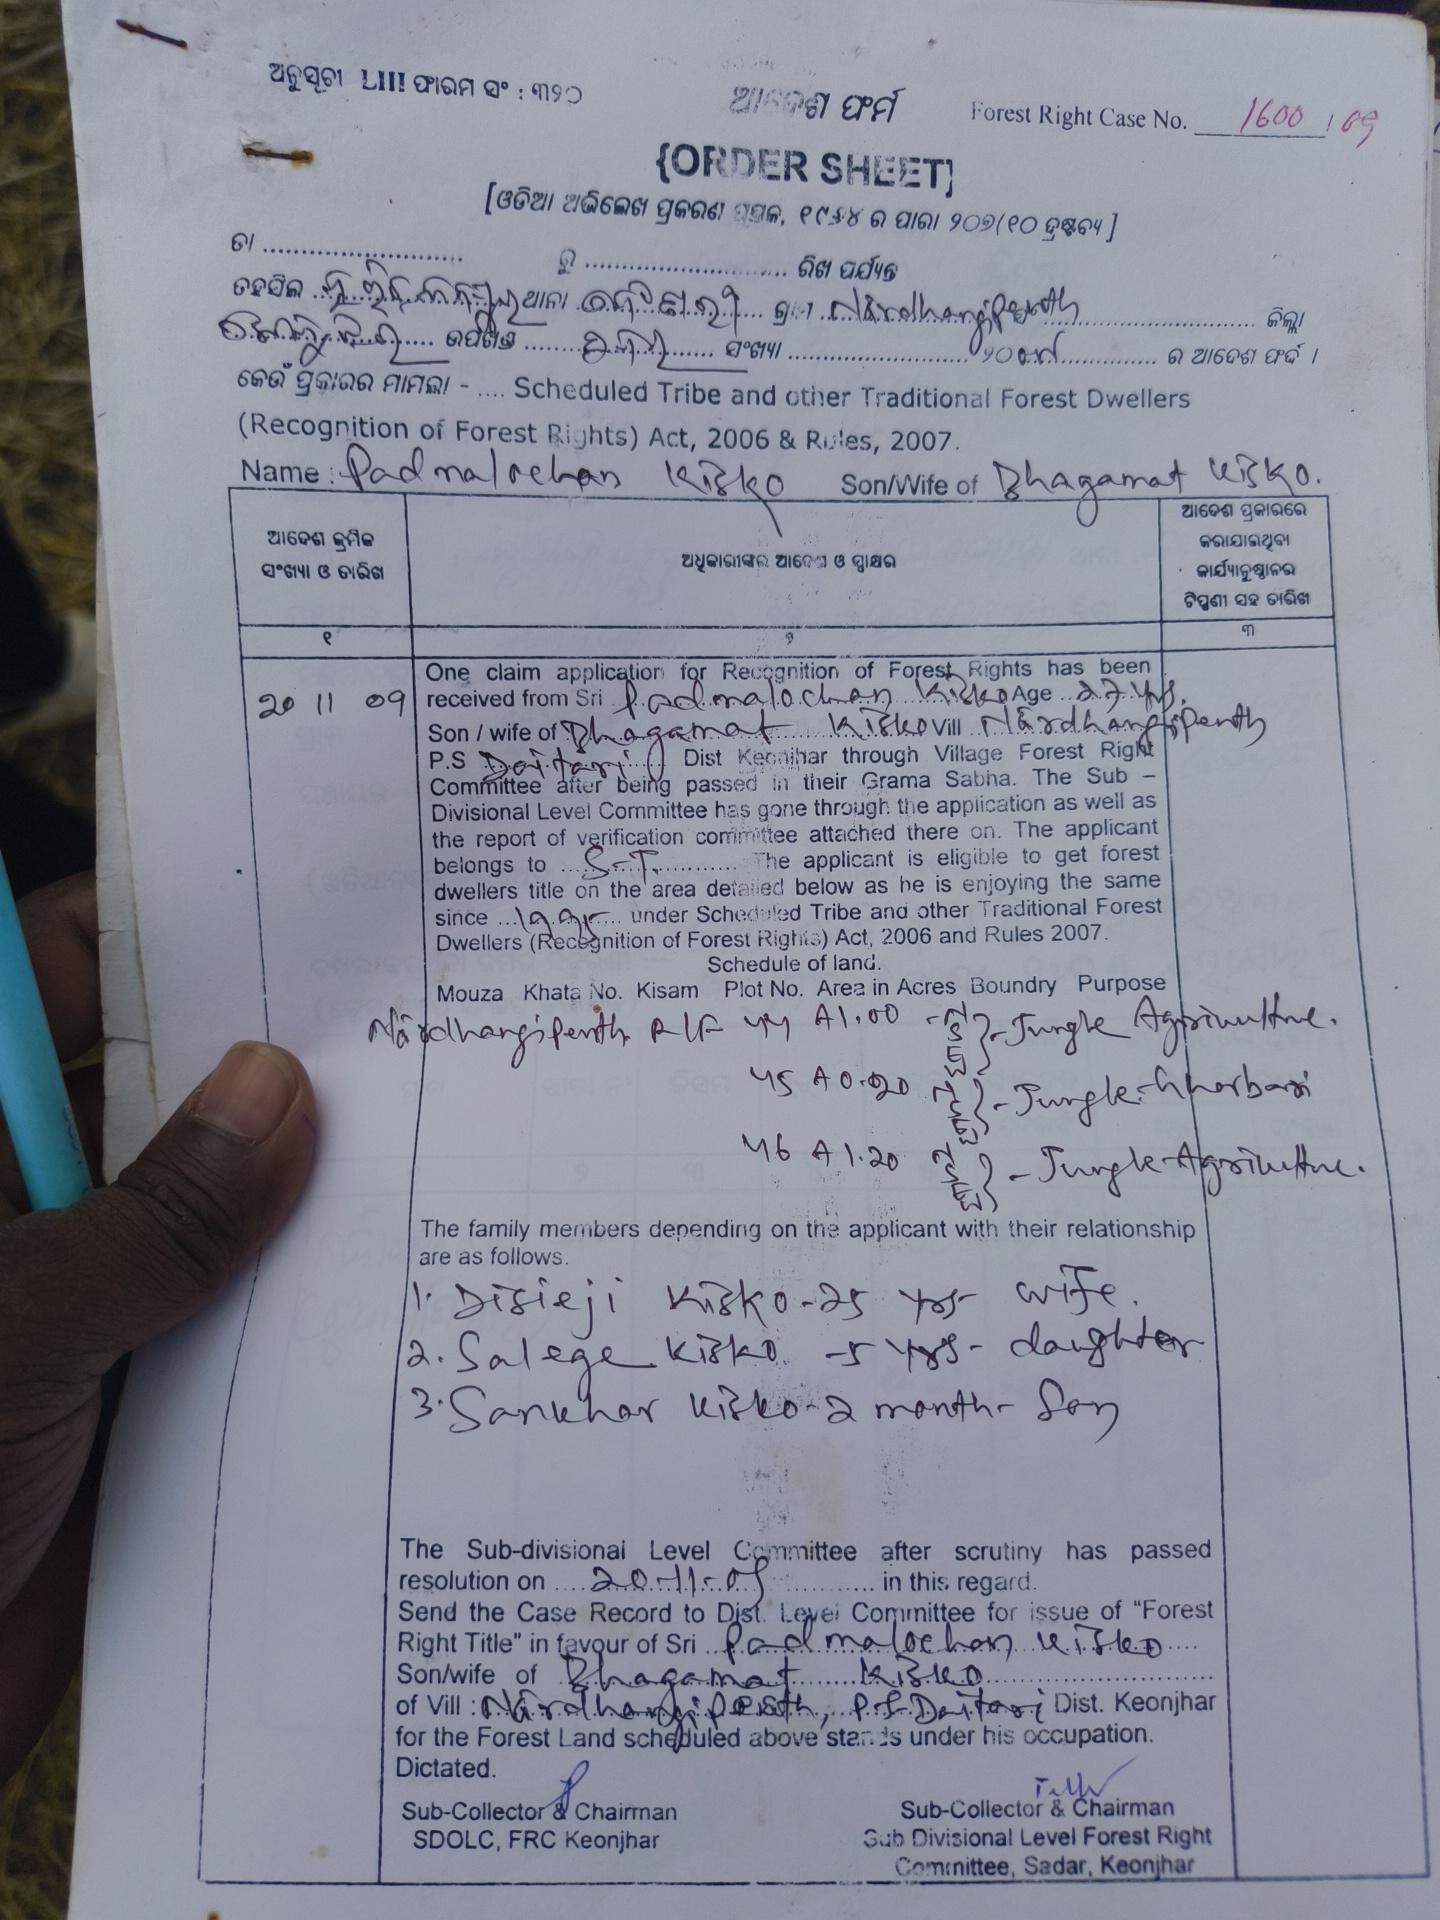 ଅନୁସୂଚୀ LIII ଫାରମ ସଂ : ୩୨୦
ଆଦେଶ ଫର୍ମ
Forest Right Case No. 1600 / 09
{ORDER SHEET]
[ଓଡିଆ ଅଭିଲେଖ ପ୍ରକରଣ ପୁସ୍ତକ, ୧୯୬୪ ର ପାରା ୨୦୭(୧୦ ଦ୍ରଷ୍ଟବ୍ୟ ]
ତା .......................... ରୁ .......................... ରିଖ ପର୍ଯ୍ୟନ୍ତ
ତହସିଲ ଥାନା ଗ୍ରାମ Nardhangipenth ଜିଲ୍ଲା
ଉପଖଣ୍ଡ ସଂଖ୍ୟା ର ଆଦେଶ ଫର୍ଦ୍ଦ ।
କେଉଁ ପ୍ରକାରର ମାମଲା - .... Scheduled Tribe and other Traditional Forest Dwellers
(Recognition of Forest Rights) Act, 2006 & Rules, 2007.
Name : Padmalochan Kisko Son/Wife of Bhagamat Kisko.
ଆଦେଶ କ୍ରମିକ
ସଂଖ୍ୟା ଓ ତାରିଖ
ଅଧିକାରୀଙ୍କର ଆଦେଶ ଓ ସ୍ୱାକ୍ଷର
ଆଦେଶ ପ୍ରକାରରେ
କରାଯାଇଥିବା
କାର୍ଯ୍ୟାନୁଷ୍ଠାନର
ଟିପ୍ପଣୀ ସହ ତାରିଖ
୧ ୨ ୩
20 11 09
One claim application for Recognition of Forest Rights has been
received from Sri Padmalochan Kisko Age 27 yrs.
Son / wife of Bhagamat Kisko Vill Nardhangipenth
P.S Daitari Dist Keonjhar through Village Forest Right
Committee after being passed in their Grama Sabha. The Sub –
Divisional Level Committee has gone through the application as well as
the report of verification committee attached there on. The applicant
belongs to ...S-T............ The applicant is eligible to get forest
dwellers title on the area detailed below as he is enjoying the same
since ...1995... under Scheduled Tribe and other Traditional Forest
Dwellers (Recognition of Forest Rights) Act, 2006 and Rules 2007.
Schedule of land.
Mouza Khata No. Kisam Plot No. Area in Acres Boundry Purpose
Nardhangipenth RLF 44 A1.00 - N S E W } - Jungle Agriculture.
45 A0.20 N S E W } - Jungle - Gharbari
46 A1.20 N S E W } - Jungle - Agriculture.
The family members depending on the applicant with their relationship
are as follows.
1. Disieji Kisko - 25 yrs - wife.
2. Salege Kisko - 5 yrs - daughter
3. Sankhar Kisko - 2 month - Son
The Sub-divisional Level Committee after scrutiny has passed
resolution on ....20-11-09............ in this regard.
Send the Case Record to Dist. Level Committee for issue of “Forest
Right Title” in favour of Sri ..Padmalochan Kisko....
Son/wife of Bhagamat Kisko.......................
of Vill : Nardhangipenth, P.S-Daitari Dist. Keonjhar
for the Forest Land scheduled above stands under his occupation.
Dictated.
Sub-Collector & Chairman
SDOLC, FRC Keonjhar
Sub-Collector & Chairman
Sub Divisional Level Forest Right
Committee, Sadar, Keonjhar